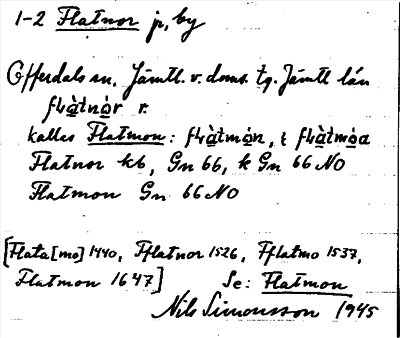 1-2 Flatnor jr, by
Offerdals sn, Jämtl. v. doms. tg. Jämtl län
flàtnòr r.
kallas Flatmon: flàtmòn, i flàtmòa
Flatnor kb, Gn 66, k Gn 66 NO
Flatmon Gn 66 NO
[Flata[mo] 1440, Fflatnor 1526, Fflatmo 1537,
Flatmon 1647] Se: Flatmon
Nils Simonsson 1945